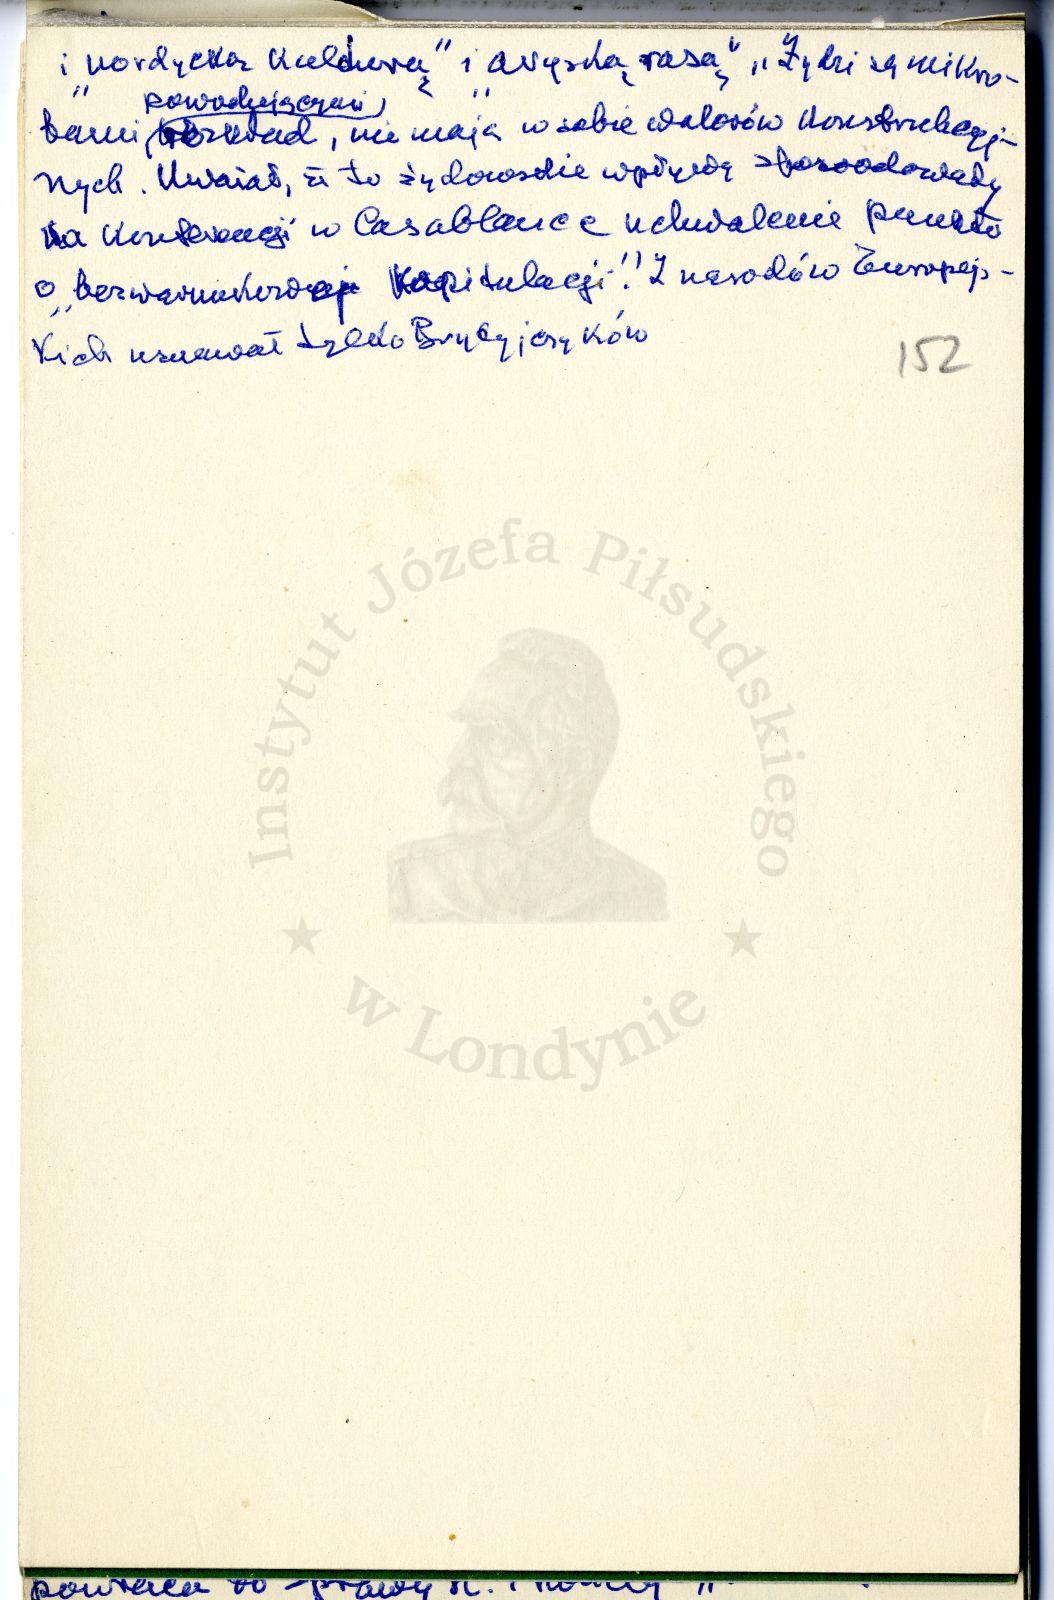 i „nordycką kulturą” i „aryską rasą”, „Żydzi są mikro-
bami, powodującymi rozkład, nie mają w sobie walorów konstrukcyj-
nych. Uważał, że to żydowskie wpływy spowodowały
na konferencji w Casablance uchwalenie punktu
o „bezwarunkowej kapitulacji.” Z narodów Europej-
kich uznawał tylko Brytyjczyków
152
Instytut Józefa Piłsudskiego
★ w Londynie ★
powraca do sprawy